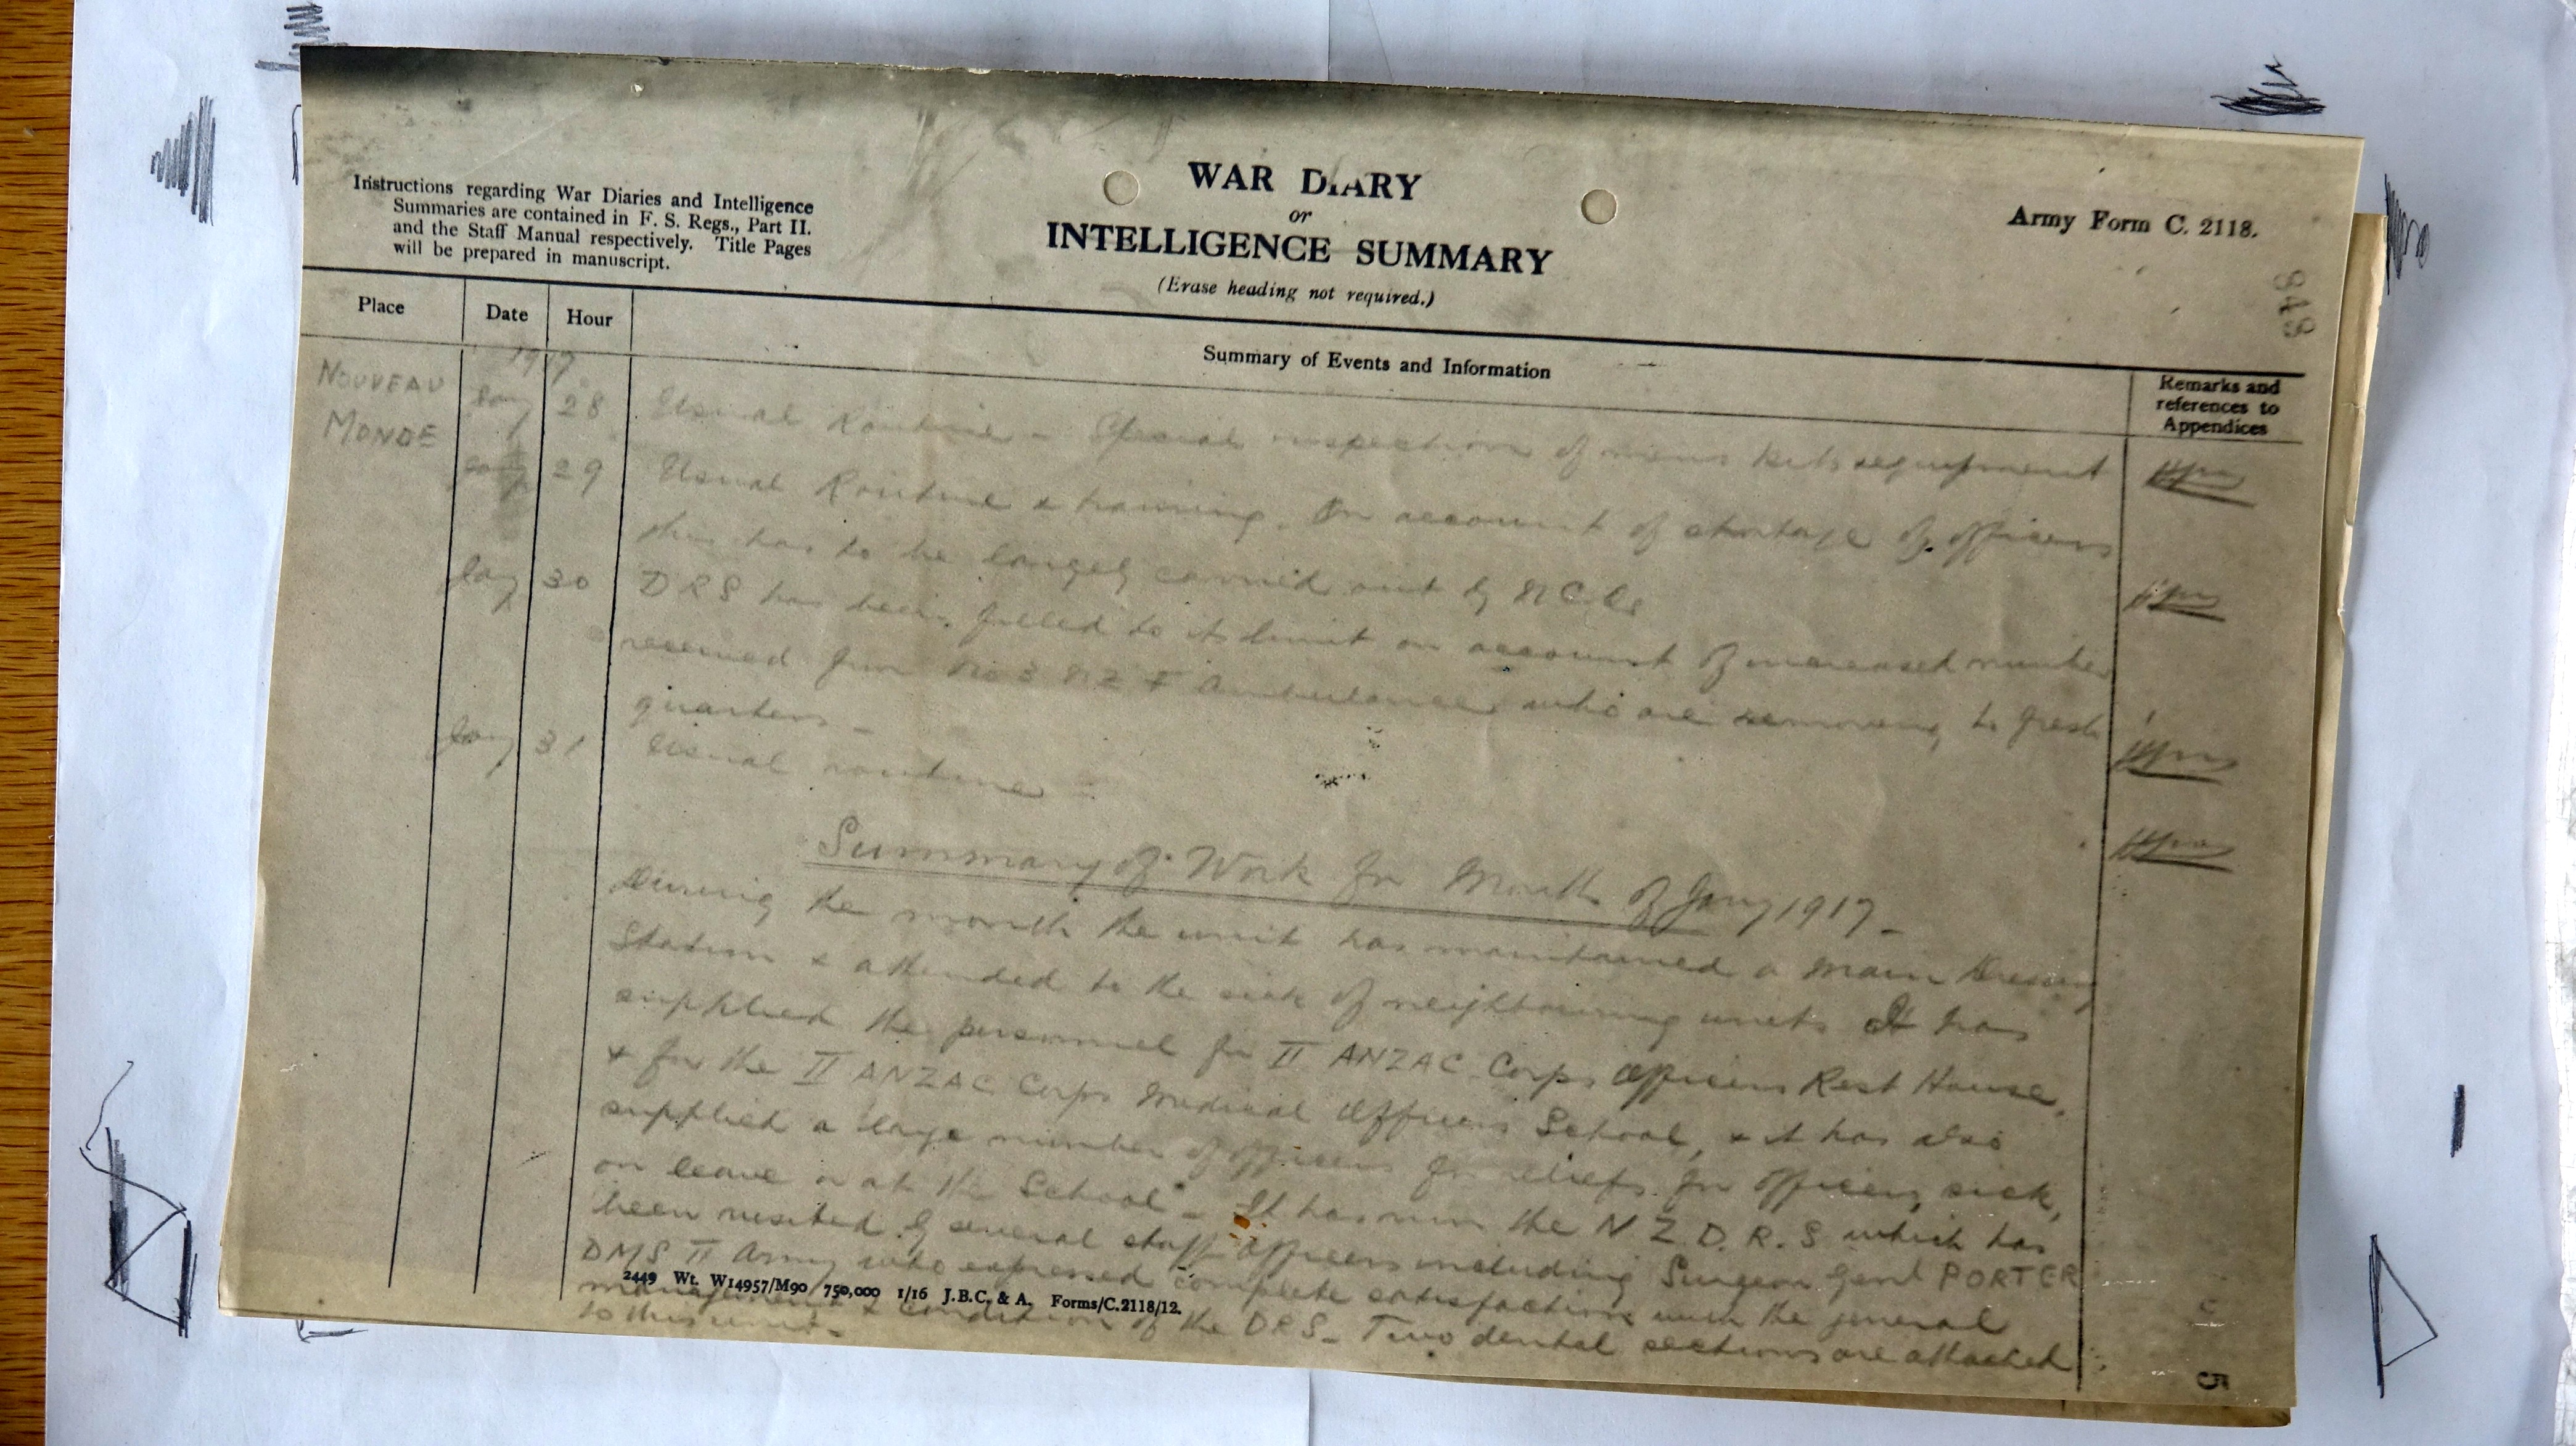 Instructions regarding War Diaries and Intelligence
Summaries are contained in F. S. Regs., Part II.
and the Staff Manual respectively. Title Pages
will be prepared in manuscript.
WAR DIARY
or
INTELLIGENCE SUMMARY
(Erase heading not required.)
Army Form C. 2118.
848
Place
Date
Hour
Summary of Events and Information
Remarks and
references to
Appendices
1917
NOUVEAU
MONDE
Jany 28 Usual Routine - Special inspection of mens kits & equipment
Jany 29 Usual Routine & training. On account of shortage of officers
this has to be largely carried out by NCOs
Jany 30 DRS has been filled to its limit on account of increased number
received from No 3 NZ F Ambulance who are removing to fresh
quarters -
Jany 31 Usual routine -
Summary of Work for Month of Jany 1917 -
During the month the unit has maintained a Main Dressing
Station & attended to the sick of neighbouring units It has
supplied the personnel for II ANZAC Corps Officers Rest House,
& for the II ANZAC Corps Medical Officers School, & it has also
supplied a large number of officers for reliefs for officers, sick,
on leave or at the School - It has run the N Z. D. R. S which has
been visited by several staff officers including Surgeon Genl PORTER
DMS II Army who expressed complete satisfaction with the general
management & condition of the DRS - Two dental sections are attached
to this unit -
2449 Wt. W14957/M90 750,000 1/16 J.B.C. & A. Forms/C.2118/12.
5